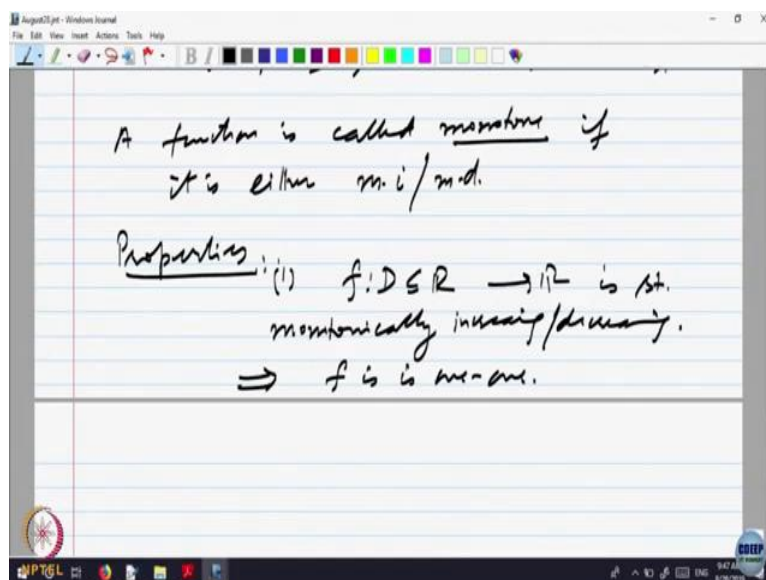 August28.jnt - Windows Journal
File Edit View Insert Actions Tools Help
A function is called monotone if
it is either m.i/m.d.
Properties: (i) f: D ⊆ R → R is st.
monotonically increasing/decreasing.
⇒ f is is one-one.
NPTEL
CDEEP
ENG